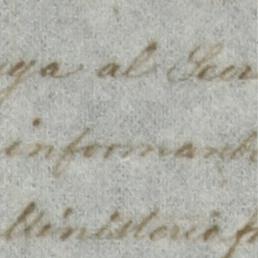 ya al Secr
informant
Ministerio